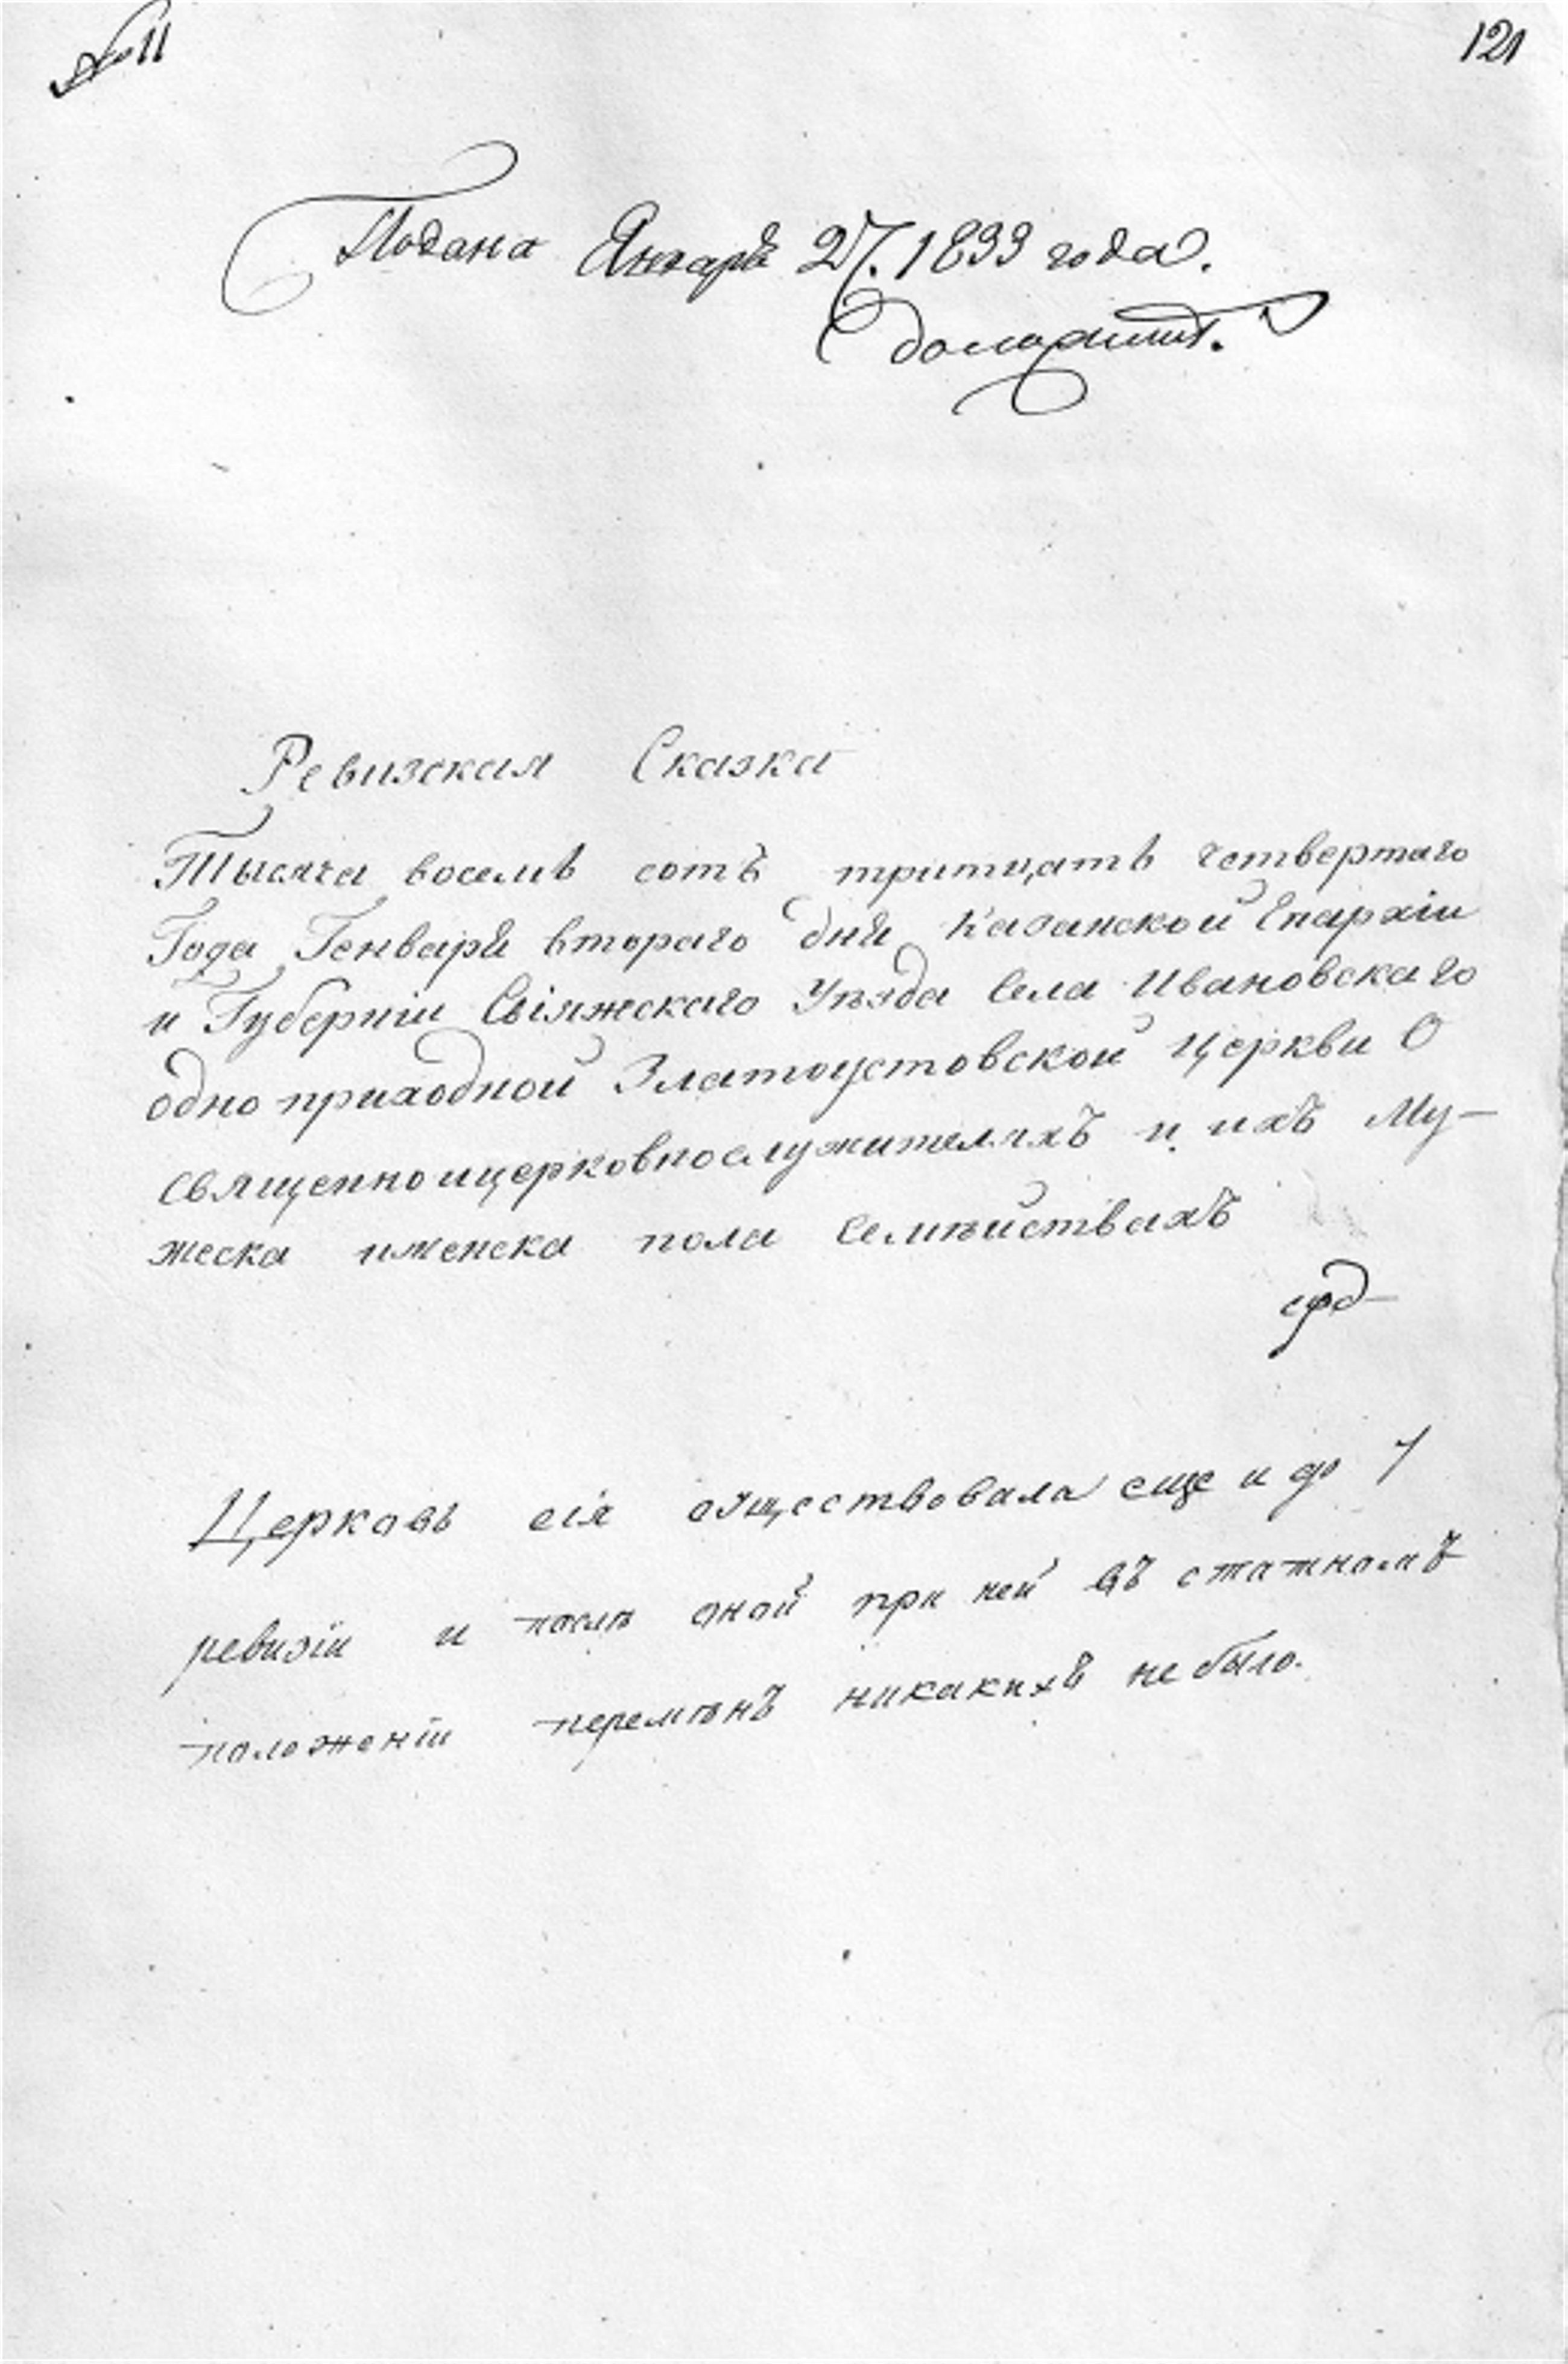 № 11
121
Подана Январѣ 27. 1833 года.
доложить.
Ревизская Сказка
Тысяча восемь сотъ тритцать четвертаго
Года Генваря втораго дня Казанской Епархіи
и Губерніи Свіяжскаго Уѣзда Села Ивановскаго
одноприходной Златоустовской церкви О
священноицерковнослужителяхъ и ихъ Му-
жеска иженска пола Семѣйствахъ
Церковь сія существовала еще и до 7
ревизіи и послѣ оной при ней въ статномъ
положеніи перемѣнъ никакихъ не было.